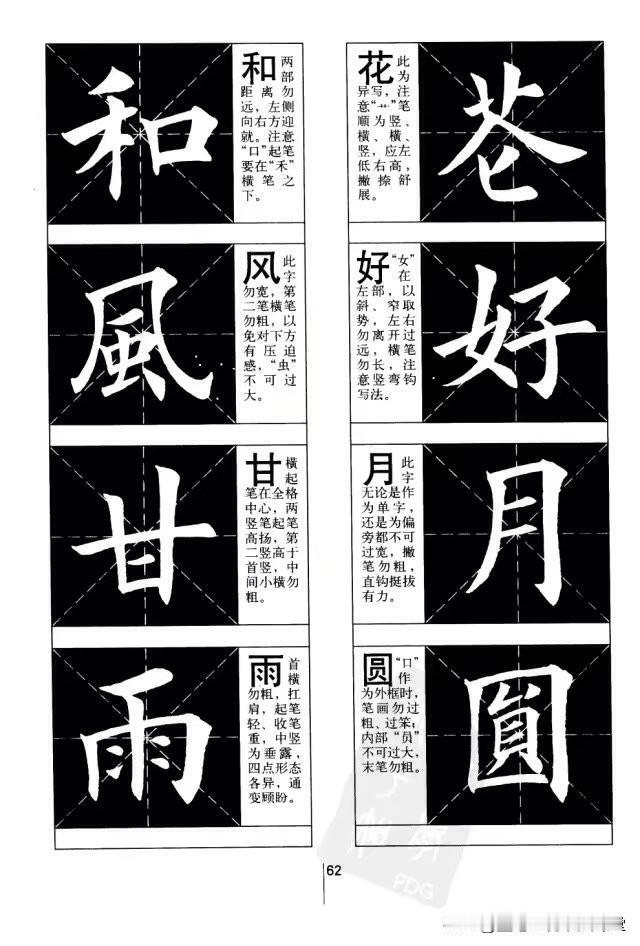 和
和 两部
距离勿
远，左侧
向右方迎
就。注意
“口”起笔
要在“禾”
横笔之
下。
花 此为
异写，注
意“艹”笔
顺为竖、
横、横、
竖，应左
低右高，
撇捺舒
展。
花
風
风 此字
勿宽，第
二笔横笔
勿粗，以
免对下方
有压迫
感，“虫”
不可过
大。
好 “女”在
左部，以
斜、窄取
势，左右
勿离开过
远，横笔
勿长，注
意竖弯钩
写法。
好
甘
甘 横起
笔在全格
中心，两
竖笔起笔
高扬，第
二竖高于
首竖，中
间小横勿
粗。
月 此字
无论是作
为单字，
还是为偏
旁都不可
过宽，撇
笔勿粗，
直钩挺拔
有力。
月
雨
雨 首横
勿粗，扛
肩，起笔
轻、收笔
重，中竖
为垂露，
四点形态
各异，通
变顾盼。
圆 “口”作
为外框时，
笔画勿过
粗、过笨；
内部“员”
不可过大，
末笔勿粗。
圓
62
PDG